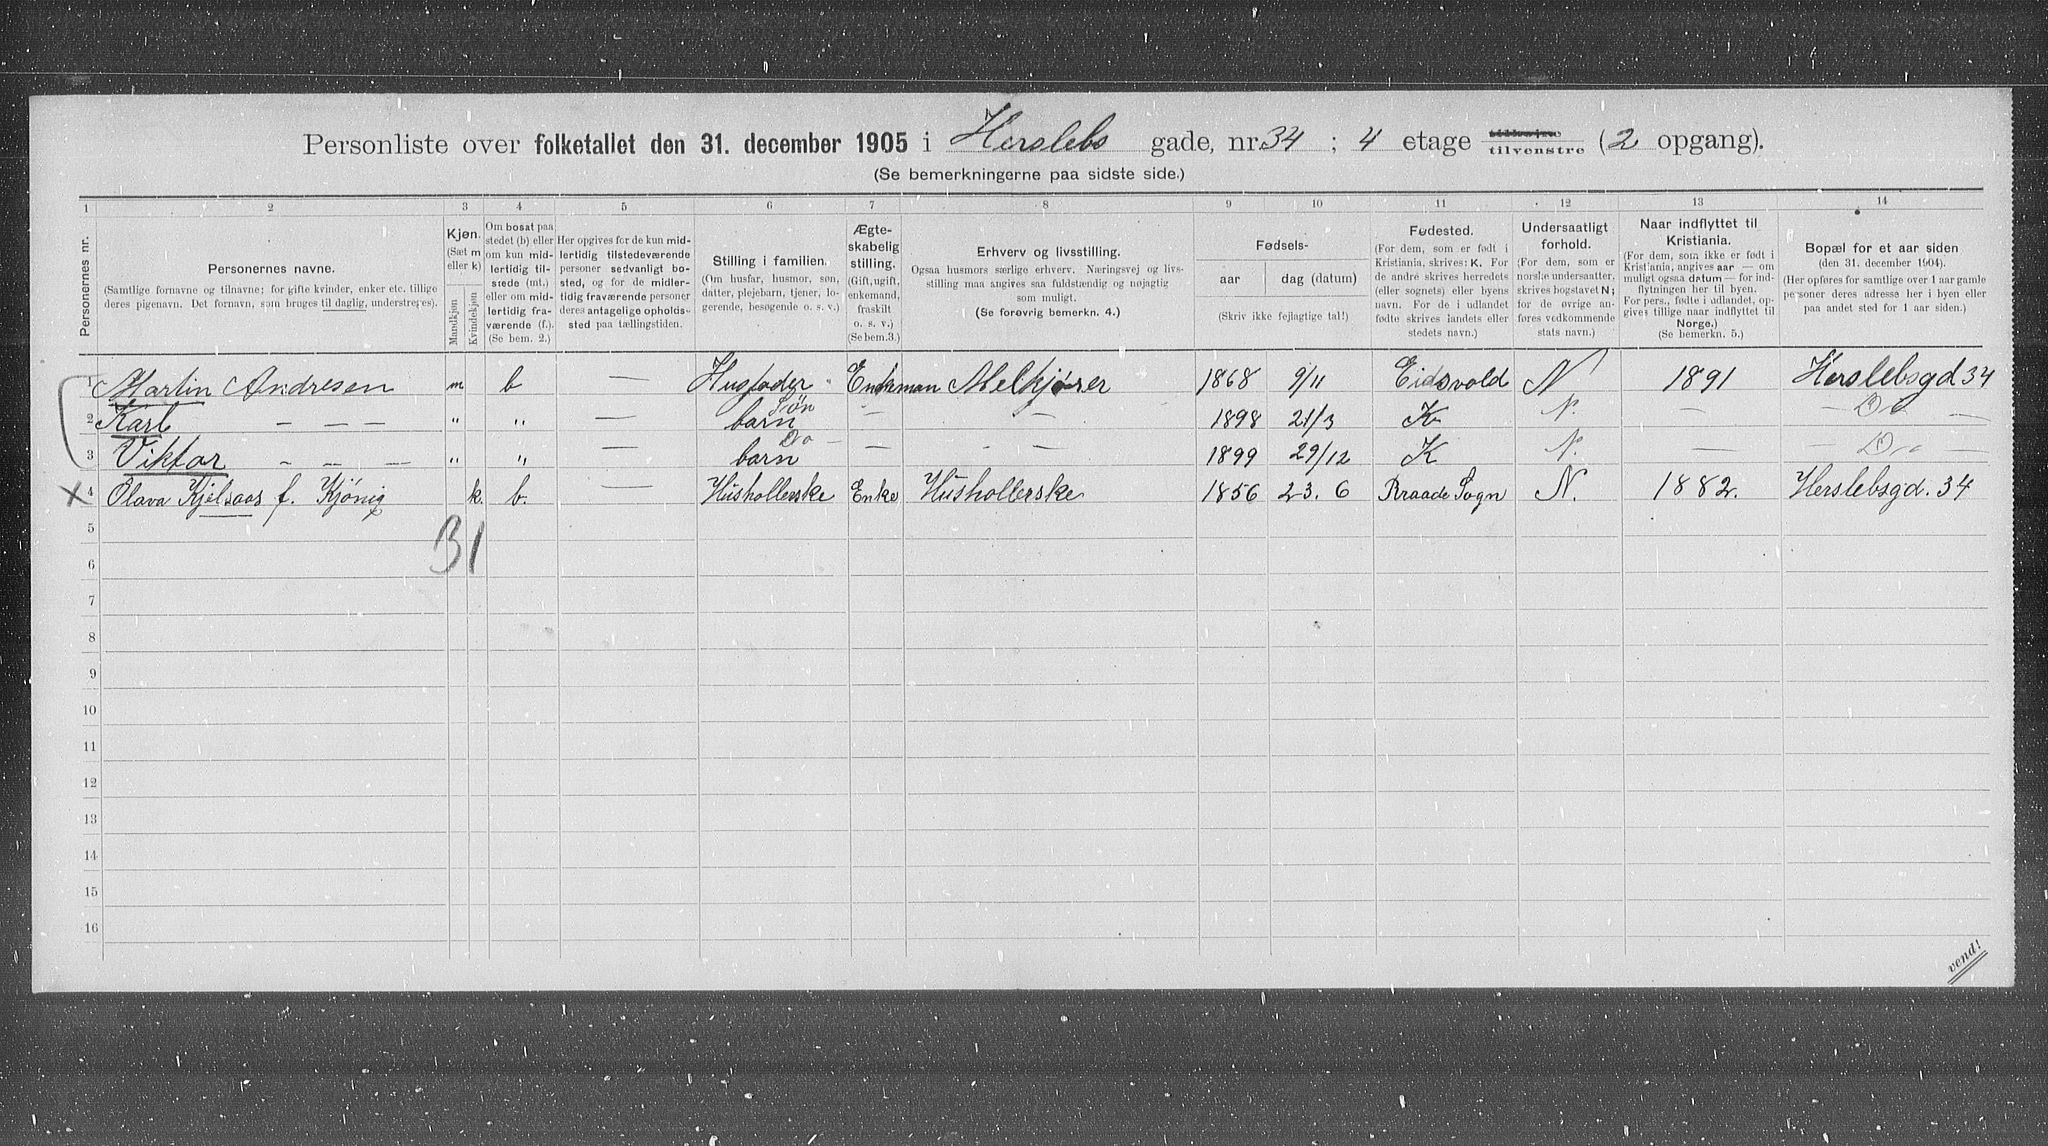 Personliste over folketallet den 31. december 1905 i Herslebs gade, nr. 34 ; 4 etage tilvenstre (2 opgang).
(Se bemerkningerne paa sidste side.)
1 2 3 4 5 6 7 8 9 10 11 12 13 14
Personernes nr.
Personernes navne.
(Samtlige fornavne og tilnavne; for gifte kvinder, enker etc. tillige
deres pigenavn. Det fornavn, som bruges til daglig, understreges).
Kjøn.
(Sæt m
eller k)
Mandkjøn
Kvindekjøn
Om bosat paa
stedet (b) eller
om kun mid-
lertidig til-
stede (mt.)
eller om mid-
lertidig fra-
værende (f.).
(Se bem. 2.)
Her opgives for de kun mid-
lertidig tilstedeværende
personer sedvanligt bo-
sted, og for de midler-
tidig fraværende personer
deres antagelige opholds-
sted paa tællingstiden.
Stilling i familien.
(Om husfar, husmor, søn,
datter, plejebarn, tjener, lo-
gerende, besøgende o. s. v.)
Ægte-
skabelig
stilling.
(Gift, ugift,
enkemand,
fraskilt
o. s. v.)
(Se bem. 3.)
Erhverv og livsstilling.
Ogsaa husmors særlige erhverv. Næringsvej og livs-
stilling maa angives saa fuldstændig og nøjagtig
som muligt.
(Se forøvrig bemerkn. 4.)
Fødsels-
aar
dag (datum)
(Skriv ikke fejlagtige tal!)
Fødested.
(For dem, som er født i
Kristiania, skrives: K. For
de andre skrives herredets
(eller sognets) eller byens
navn. For de i udlandet
fødte skrives landets eller
stedets navn.)
Undersaatligt
forhold.
(For dem, som er
norske undersaatter,
skrives bogstavet N;
for de øvrige an-
føres vedkommende
stats navn.)
Naar indflyttet til
Kristiania.
(For dem, som ikke er født i
Kristiania, angives aar — om
muligt ogsaa datum — for ind-
flytningen her til byen.
For pers., fødte i udlandet, op-
gives tillige naar indflyttet til
Norge.)
(Se bemerkn. 5.)
Bopæl for et aar siden
(den 31. december 1904).
(Her opføres for samtlige over 1 aar gamle
personer deres adresse her i byen eller
paa andet sted for 1 aar siden.)
1 Martin Andresen m b — Husfader Enkman Melkjører 1868 9/11 Eidsvold N 1891 Herslebsgd 34
2 Karl — — — " " — barn Søn — — — 1898 21/3 K N. — — Do —
3 Viktor — — — " " — barn Do — — — — 1899 29/12 K N. — — Do —
x 4 Olava Kjelsaas f. Kjönig k. b. — Hushollerske Enke Hushollerske 1856 23. 6 Raade Sogn N. 1882. Herslebsgd. 34
5
31
6
7
8
9
10
11
12
13
14
15
16
vend!